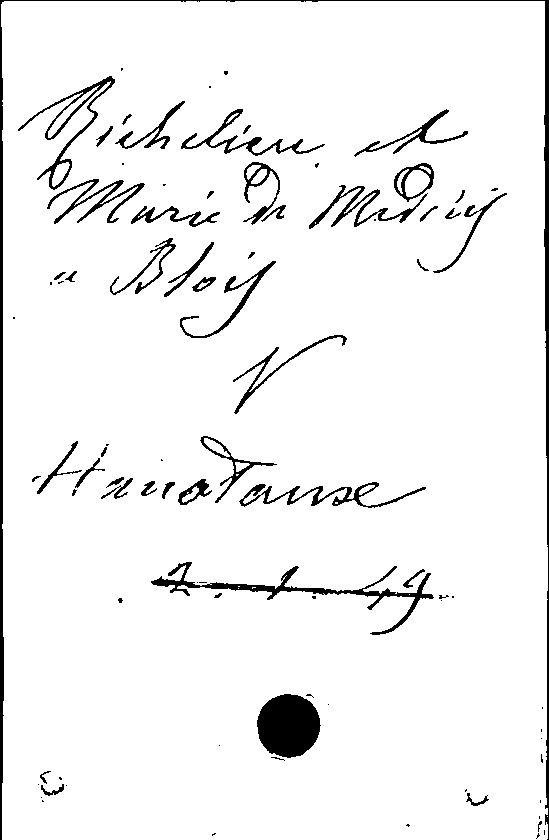 Richelieu et
Marie de Medicis
a Blois
V
Hanotaux
2.1.49